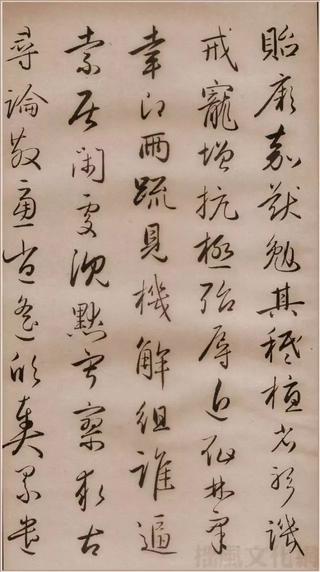 貽厥嘉猷勉其祗植省躬譏
戒寵增抗極殆辱近恥林皋
幸即兩疏見機解組誰逼
索居閑處沈默寂寥求古
尋論散慮逍遙欣奏累遣
風文化網